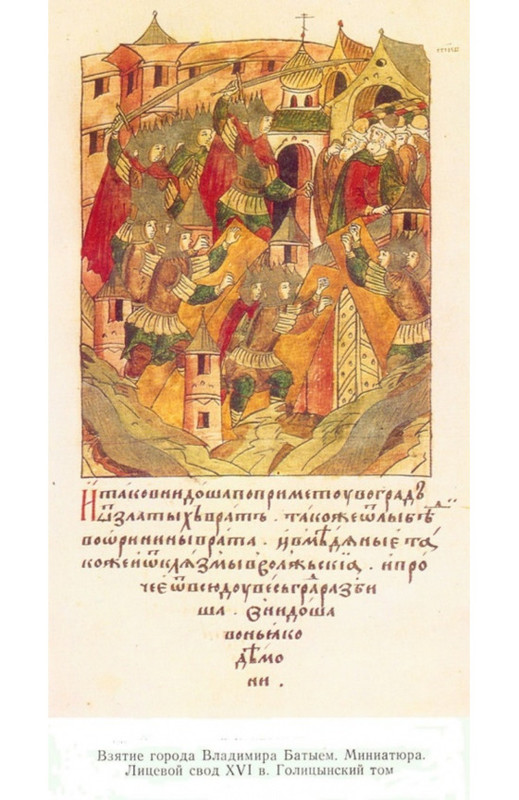 И таковнидошапоприметоувоградъ
ѿзлатыхъвратъ . такожеѿлыбѣⷣ
воѡрининыврата . ивмѣдяные та
кожеиѿклязмыв волжьскїа . ипро
чееѿвсюдоувесьграⷣразби
ша . внидоша
воньяко
дѣмо
ни .
Взятие города Владимира Батыем. Миниатюра.
Лицевой свод XVI в. Голицынский том